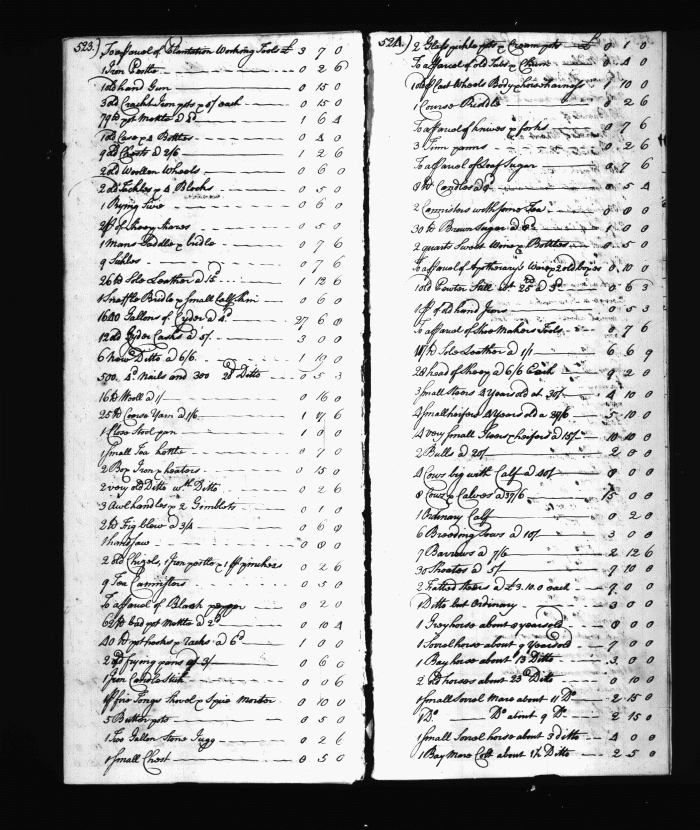 523.) To a parcel of Plantation Working Tools £ 3 7 0
1 Iron Pestle 0 2 6
1 old hand Gun 0 15 0
3 old Crackt Iron pts a 5/ each 0 15 0
79 lb pot Mettle a 4d 1 6 4
1 old Case & 4 Bottles 0 4 0
9 old Chests a 2/6 1 2 6
2 old Woollen Wheels 0 6 0
2 old Tackles & 4 Blocks 0 5 0
1 Frying 0 6 0
2 pr of Sheep Shares 0 5 0
1 Mans Saddle & bridle 0 7 6
9 Sickles 0 7 6
26 lb Sole Leather a 15d 1 12 6
1 Snaffle Bridle & Small Calf Skin 0 6 0
1640 Gallons of Cyder a 4d 27 6 8
12 old Cyder Casks a 5/ 3 0 0
6 new Ditto a 6/6 1 19 0
500. 4d Nails and 300 2d Ditto 0 5 3
16 lb Wooll a 1/ 0 16 0
25 lb Coarse Yarn a 1/6 1 17 6
1 Close Stool pan 1 0 0
1 Small Tea kettle 0 7 0
2 Box Iron & heaters 0 15 0
2 very old Ditto wth Ditto 0 2 6
3 Awl handles & 2 Gimblets 0 1 0
2 lb Fig blew a 3/4 0 6 8
1 handsaw 0 8 0
2 old Chizels, 1 Iron pestle & 1 pr pinchers 0 2 6
9 Tea Cannisters 0 5 0
To a parcel of Black pepper 0 2 0
62 lb bad pot Mettle a 2d 0 10 4
40 lb pot hooks & Racks a 6d 1 0 0
2 old frying pans a 3/ 0 6 0
1 Iron Candlestick 0 0 6
1 pr fire Tongs Shovel & Spice Morter 0 10 0
5 Butter pots 0 5 0
1 Two Gallon Stone Jugg 0 2 6
1 Small Chest 0 5 0
524.) 2 Glass pickle pots & Cream pots £ 0 1 0
To a parcel of old Tubs & Churn 0 4 0
1 old pr Cart Wheels Body & horse harness 1 10 0
1 Course Riddle 0 2 6
To a parcel of knives & forks 0 7 6
3 Tinn panns 0 2 6
To a parcel of Loaf Sugar 0 7 6
8 lb Candles a 8d 0 5 4
2 Cannisters with some Tea 0 8 0
30 lb Brown Sugar a 8d 1 0 0
2 quarts Sweet Wine & Bottles 0 5 0
To a parcel of Apothecary's Ware & 2 old boxes 0 10 0
1 old Pewter Still wt 25 a 3d 0 6 3
1 pr of old hand Irons 0 5 3
To a parcel of Shoe Makers Tools 0 7 6
lb Sole Leather a 1/1 6 6 9
28 head of Sheep a 6/6 Each 9 2 0
3 Small Steers 4 Years old at 30/ 4 10 0
4 Small heifers 4 Years old a 27/6 5 10 0
14 very Small Steers & heifers a 15/ 10 10 0
2 Bulls a 20/ 2 0 0
4 Cows big with Calf a 40/ 8 0 0
8 Cows & Calves a 37/6 15 0 0
1 Ordinary Calf 0 2 0
6 Breeding Sows a 10/ 3 0 0
7 Barrows a 7/6 2 12 6
30 Shoates a 5/ 7 10 0
2 Fatted Steers a £3.10.0 each 7 0 0
1 Ditto but Ordinary 3 0 0
1 Grey horse about 8 years old 8 0 0
1 Sorrel horse about 9 Years old 7 0 0
1 Bay horse about 13 Ditto 3 0 0
2 old horses about 23 Ditto 0 10 0
1 Small Sorrel Mare about 11 Do 2 15 0
1 Do Do about 9 Do 2 15 0
1 Small Sorrel horse about 3 ditto 4 0 0
1 Bay Mare Colt about 1½ Ditto 2 5 0